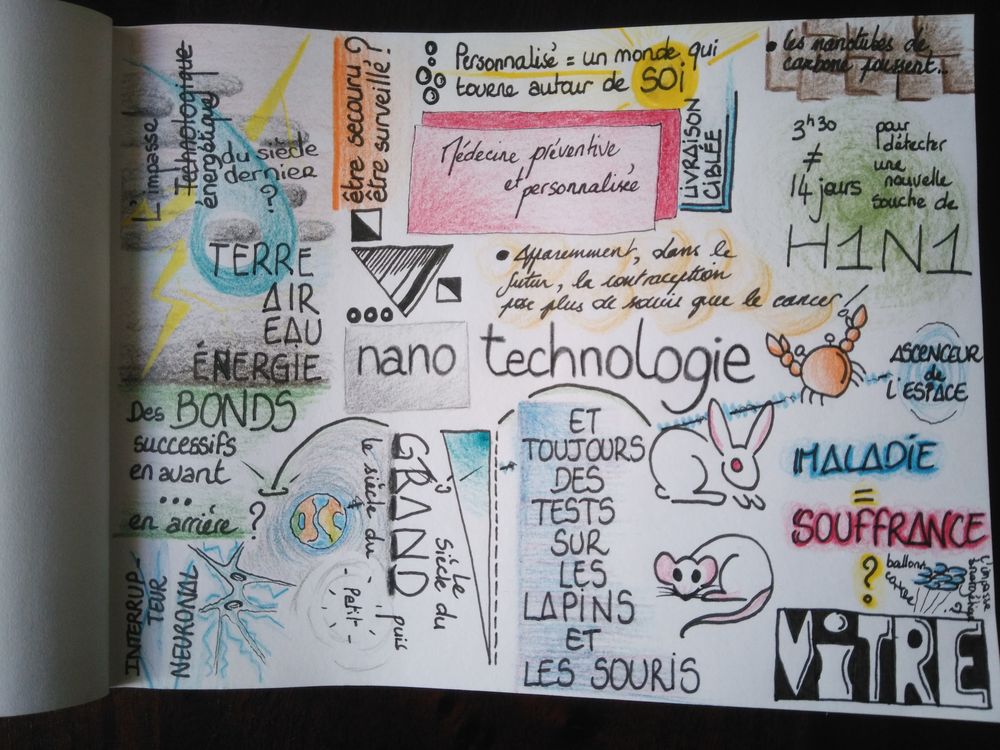 L'impasse
Technologique
énergétique
du siècle
dernier
?
TERRE
AIR
EAU
ÉNERGIE
être secouru ?
être surveillé ?
Personnalisé = un monde qui
tourne autour de SOI
Médecine préventive
et personnalisée
LIVRAISON
CIBLÉE
• les nanotubes de
carbone poussent...
3h30
≠
14 jours
pour
détecter
une
nouvelle
souche de
H1N1
• Apparemment, dans le
futur, la contraception
pose plus de soucis que le cancer !
nano technologie
ASCENCEUR
de
L'ESPACE
Des BONDS
successifs
en avant
...
en arrière ?
INTERRUP
TEUR
NEURONAL
le siècle du
GRAND
puis
Le
Siècle du
Petit
ET
TOUJOURS
DES
TESTS
SUR
LES
LAPINS
ET
LES SOURIS
MALADIE
=
SOUFFRANCE
?
ballons
l'impasse
VITRE